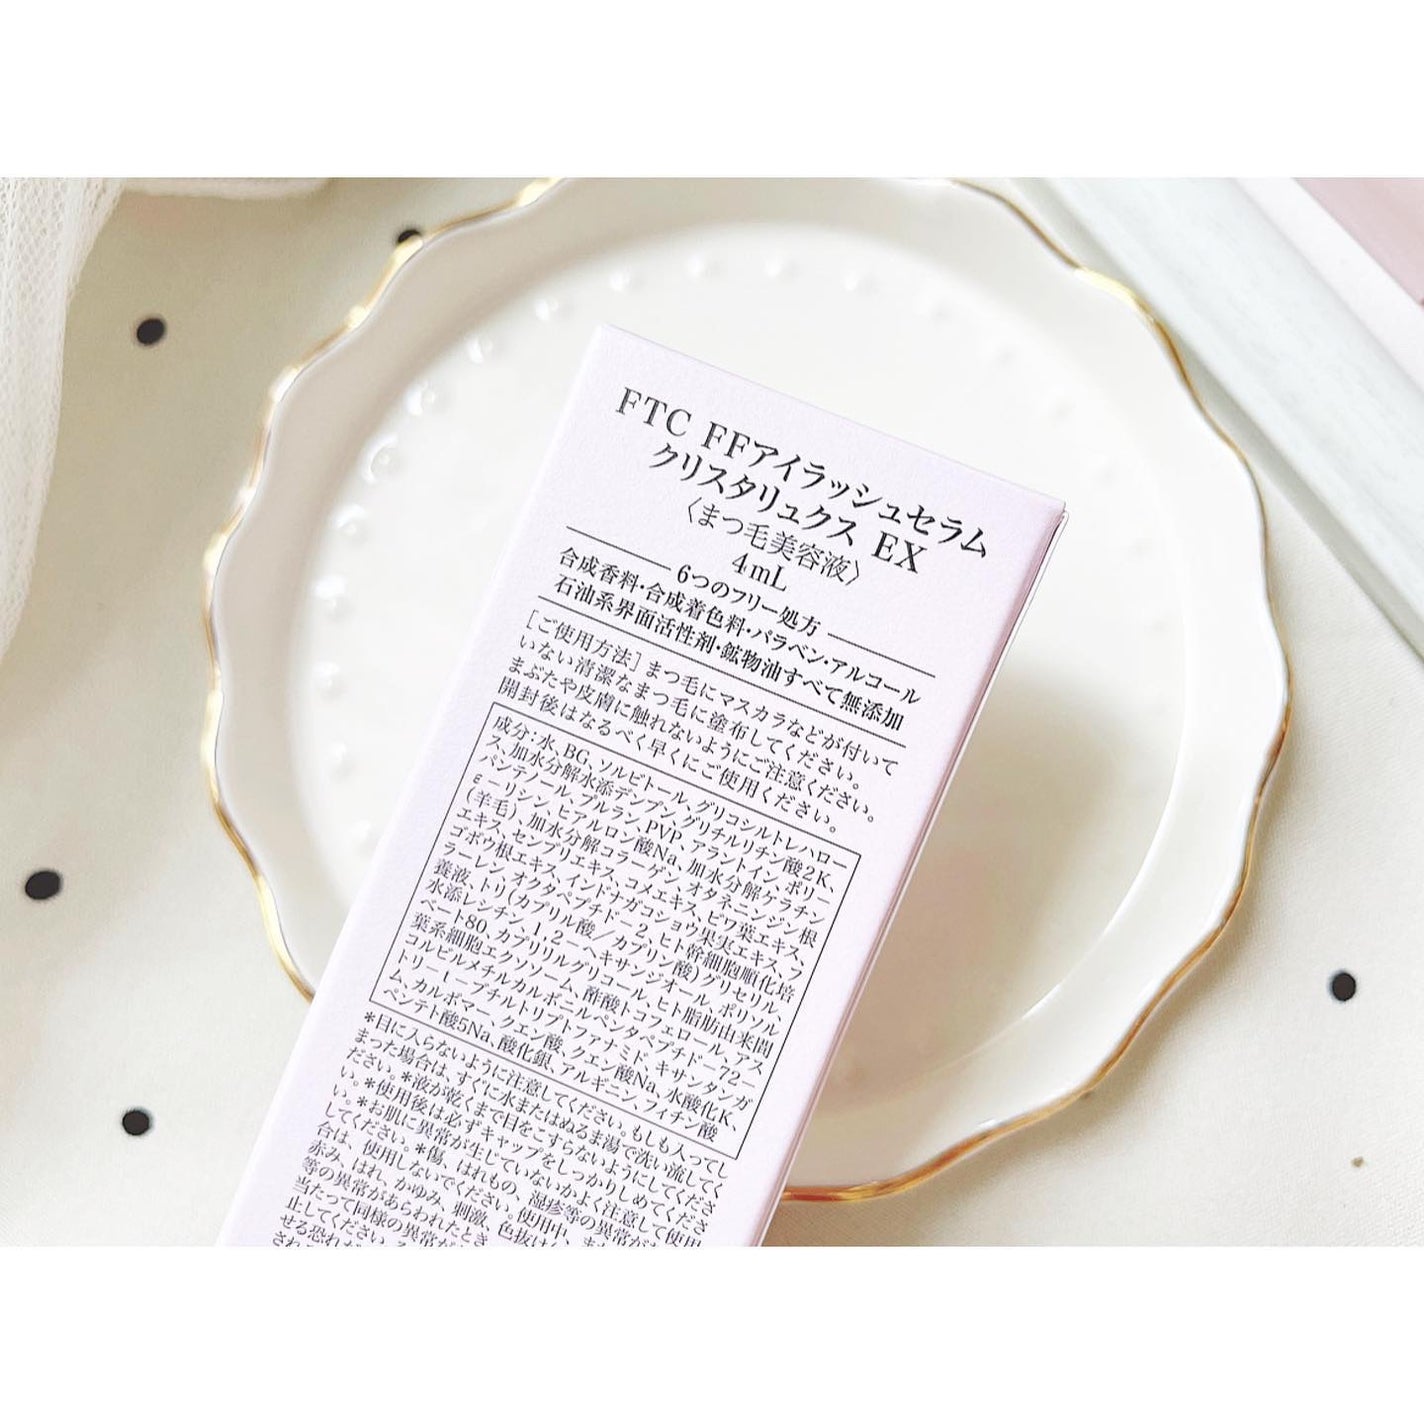 FTC FFアイラッシュセラム
クリスタリュクス EX
〈まつ毛美容液〉
4mL
6つのフリー処方
合成香料・合成着色料・パラベン・アルコール
石油系界面活性剤・鉱物油すべて無添加
［ご使用方法］まつ毛にマスカラなどが付いて
いない清潔なまつ毛に塗布してください。
まぶたや皮膚に触れないようにご注意ください。
開封後はなるべく早くにご使用ください。
成分：水、BG、ソルビトール、グリコシルトレハロー
ス、加水分解水添デンプン、グリチルリチン酸2K、
パンテノール、プルラン、PVP、アラントイン、ポリー
ε－リシン、ヒアルロン酸Na、加水分解ケラチン
（羊毛）、加水分解コラーゲン、オタネニンジン根
エキス、センブリエキス、コメエキス、ビワ葉エキス、
ゴボウ根エキス、インドナガコショウ果実エキス、フ
ラーレン、オクタペプチド－2、ヒト幹細胞順化培
養液、トリ（カプリル酸／カプリン酸）グリセリル、
水添レシチン、1，2－ヘキサンジオール、ポリソル
ベート80、カプリリルグリコール、ヒト脂肪由来間
葉系細胞エクソソーム、酢酸トコフェロール、アス
コルビルメチルカルボニルペンタペプチド－72－
トリ－t－ブチルトリプトファナミド、キサンタンガ
ム、カルボマー、クエン酸、クエン酸Na、水酸化K、
ペンテト酸5Na、酸化銀、アルギニン、フィチン酸
＊目に入らないように注意してください。もしも入ってし
まった場合は、すぐに水またはぬるま湯で洗い流してく
ださい。＊液が乾くまで目をこすらないようにしてくださ
い。＊使用後は必ずキャップをしっかりしめてくださ
い。＊お肌に異常が生じていないかよく注意して使用
してください。＊傷、はれもの、湿疹等の異常が
合は、使用しないでください。使用中、
赤み、はれ、かゆみ、刺激、色抜け
等の異常があらわれたとき
当たって同様の異常が
止してください。
せる恐れ